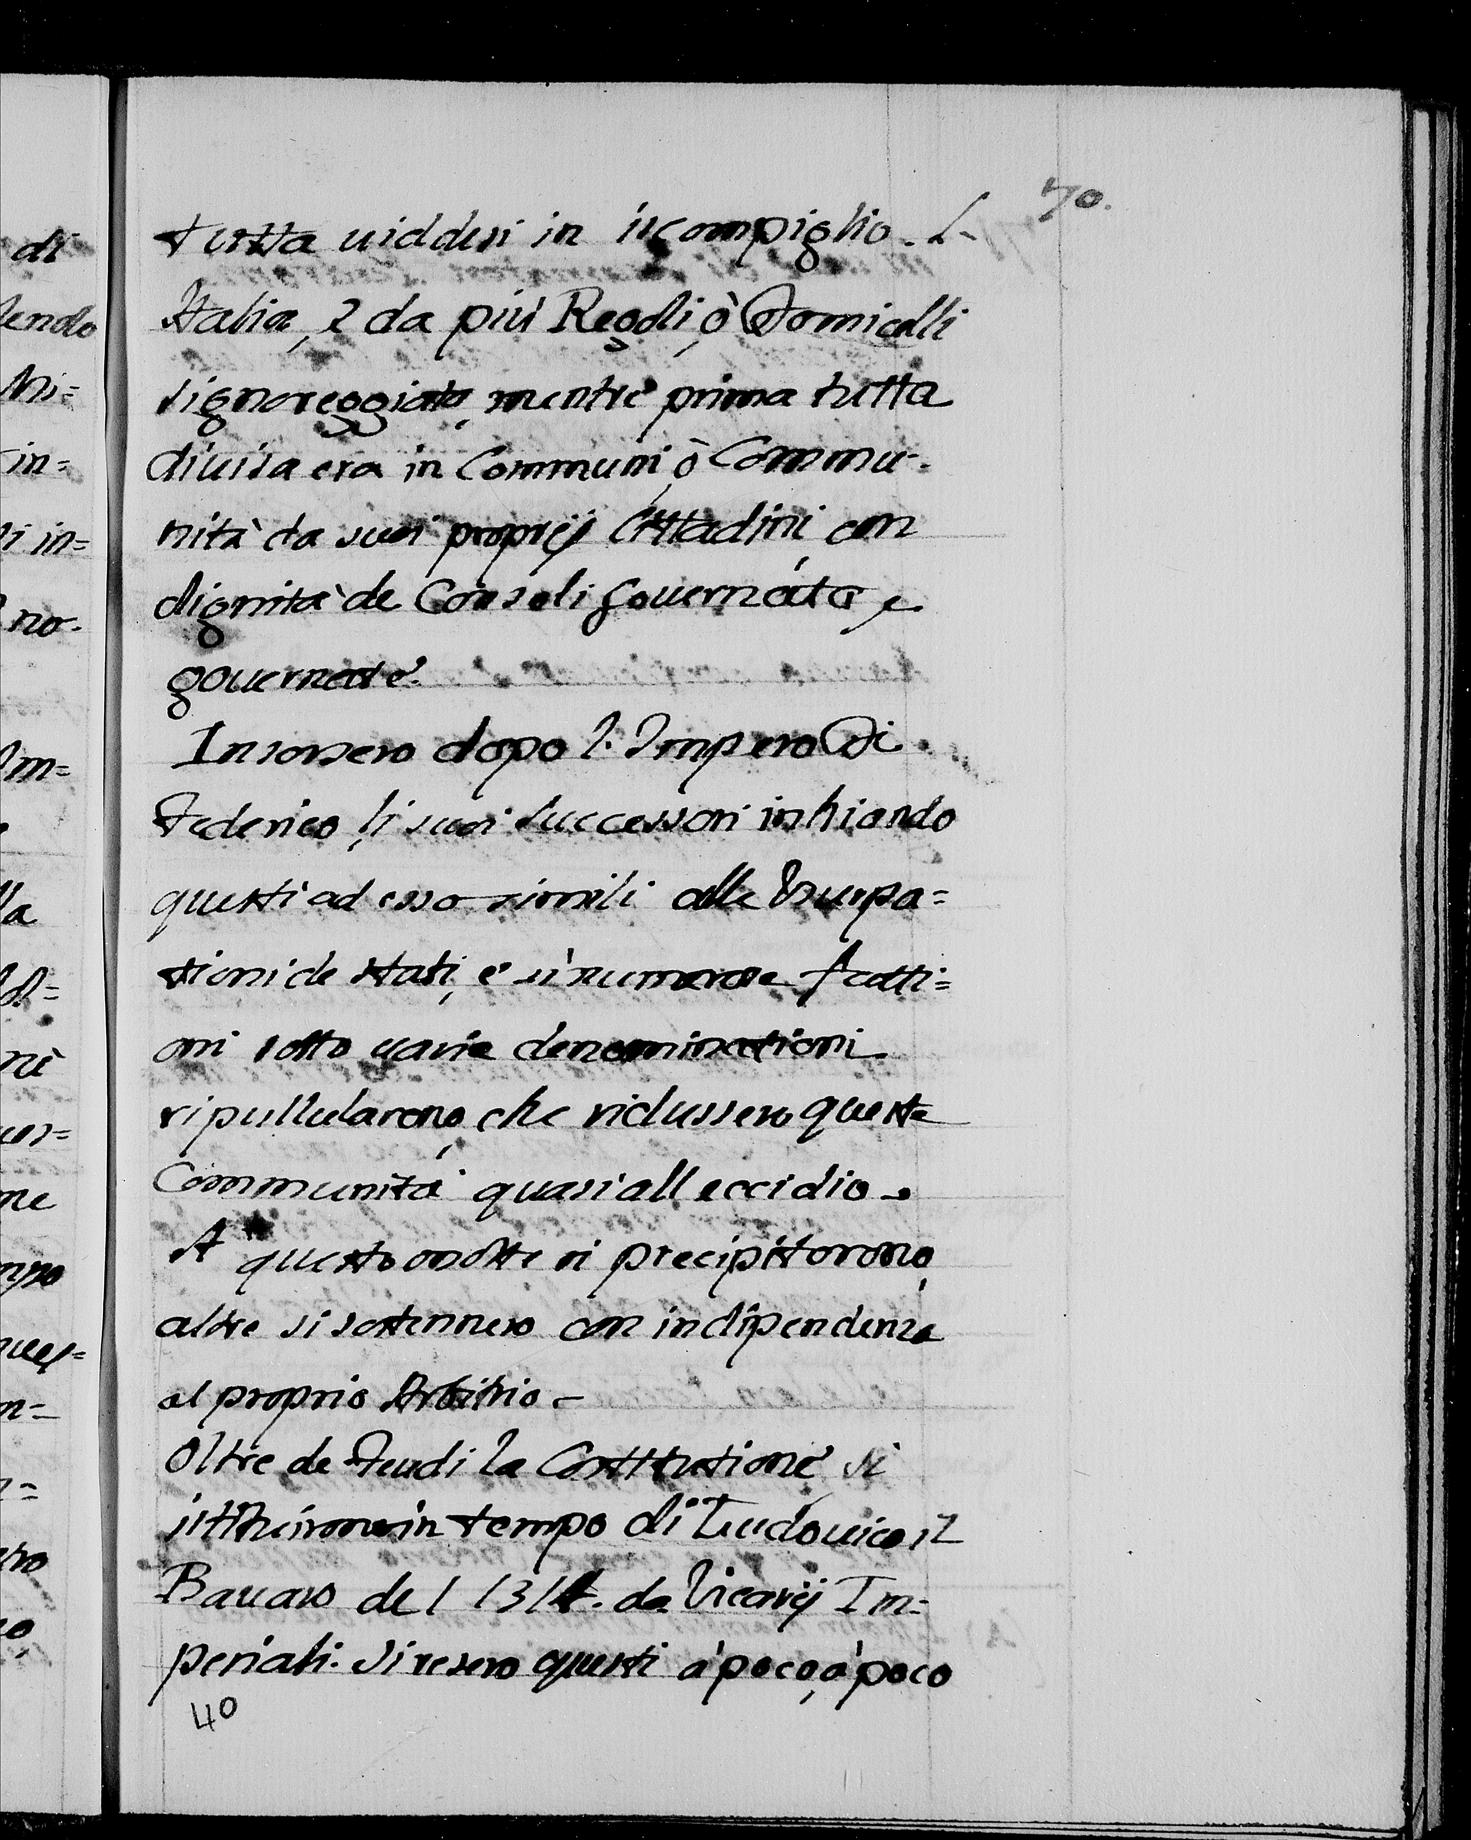 70.
tutta uiddesi in iscompiglio. L'
Italia, e da più Regoli, ò Domicelli
signoreggiata, mentre prima tutta
diuisa era in Communi, ò Commu-
nità da suoi proprij Cittadini, con
dignità de Consoli gouernata, e
gouernate.
Insorsero dopo l'Impero di
Federico, li suoi successori inhiando
questi ad esso simili alle Vsurpa=
tioni de stati, e sì numerose fatti=
oni sotto varie denominationi
ripullularono, che ridussero queste
Communità quasi all eccidio.
A questo molte si precipittorono,
altre si sostennero con indipendenza
al proprio Arbitrio -
Oltre de Feudi la Costitutione si
istituirono in tempo di Ludouico il
Bauaro del 1314. da Vicarij Im=
periali. Si resero questi à poco, à poco
40
di
lendo
Mi=
in=
li in=
no.
Im=
la
nè
ues=
me
mpo
n=